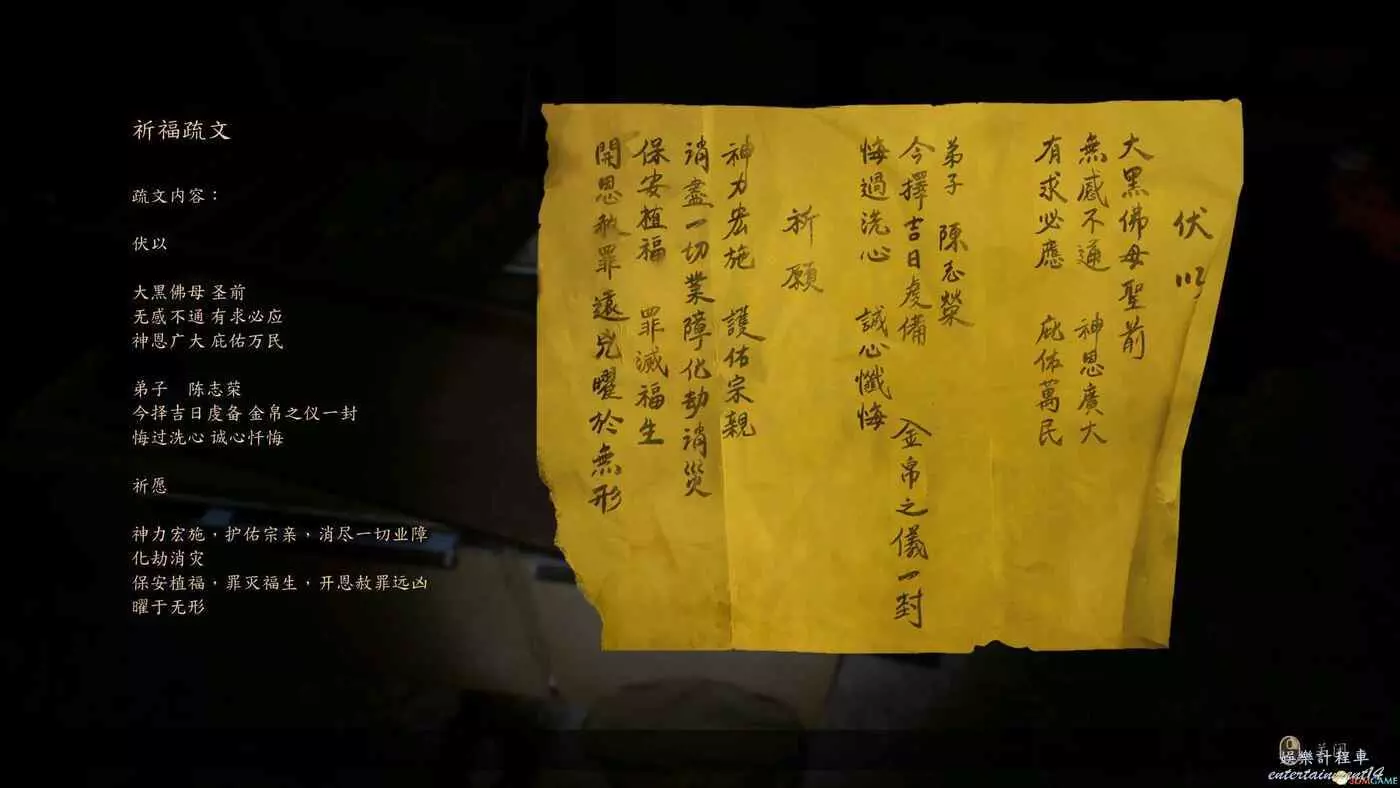 祈福疏文
疏文内容：
伏以
大黑佛母 圣前
无感不通 有求必应
神恩广大 庇佑万民
弟子　陈志荣
今择吉日虔备 金帛之仪一封
悔过洗心 诚心忏悔
祈愿
神力宏施，护佑宗亲，消尽一切业障
化劫消灾
保安植福，罪灭福生，开恩赦罪远凶
曜于无形
伏以
大黑佛母聖前
無感不通　神恩廣大
有求必應　庇佑萬民
弟子　陳志榮
今擇吉日虔備　金帛之儀一封
悔過洗心　誠心懺悔
祈願
神力宏施　護佑宗親
消盡一切業障化劫消災
保安植福　罪滅福生
開恩赦罪遠兇曜於無形
娛樂計程車
entertainment14